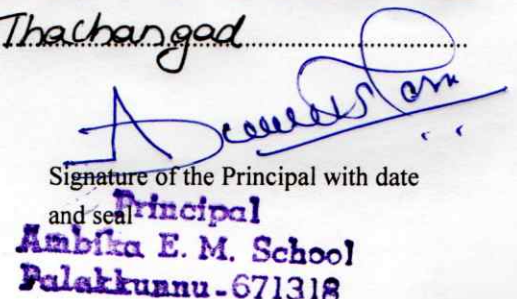 Thachangad
Signature of the Principal with date
and seal
Principal
Ambika E. M. School
Palakkunnu-671318